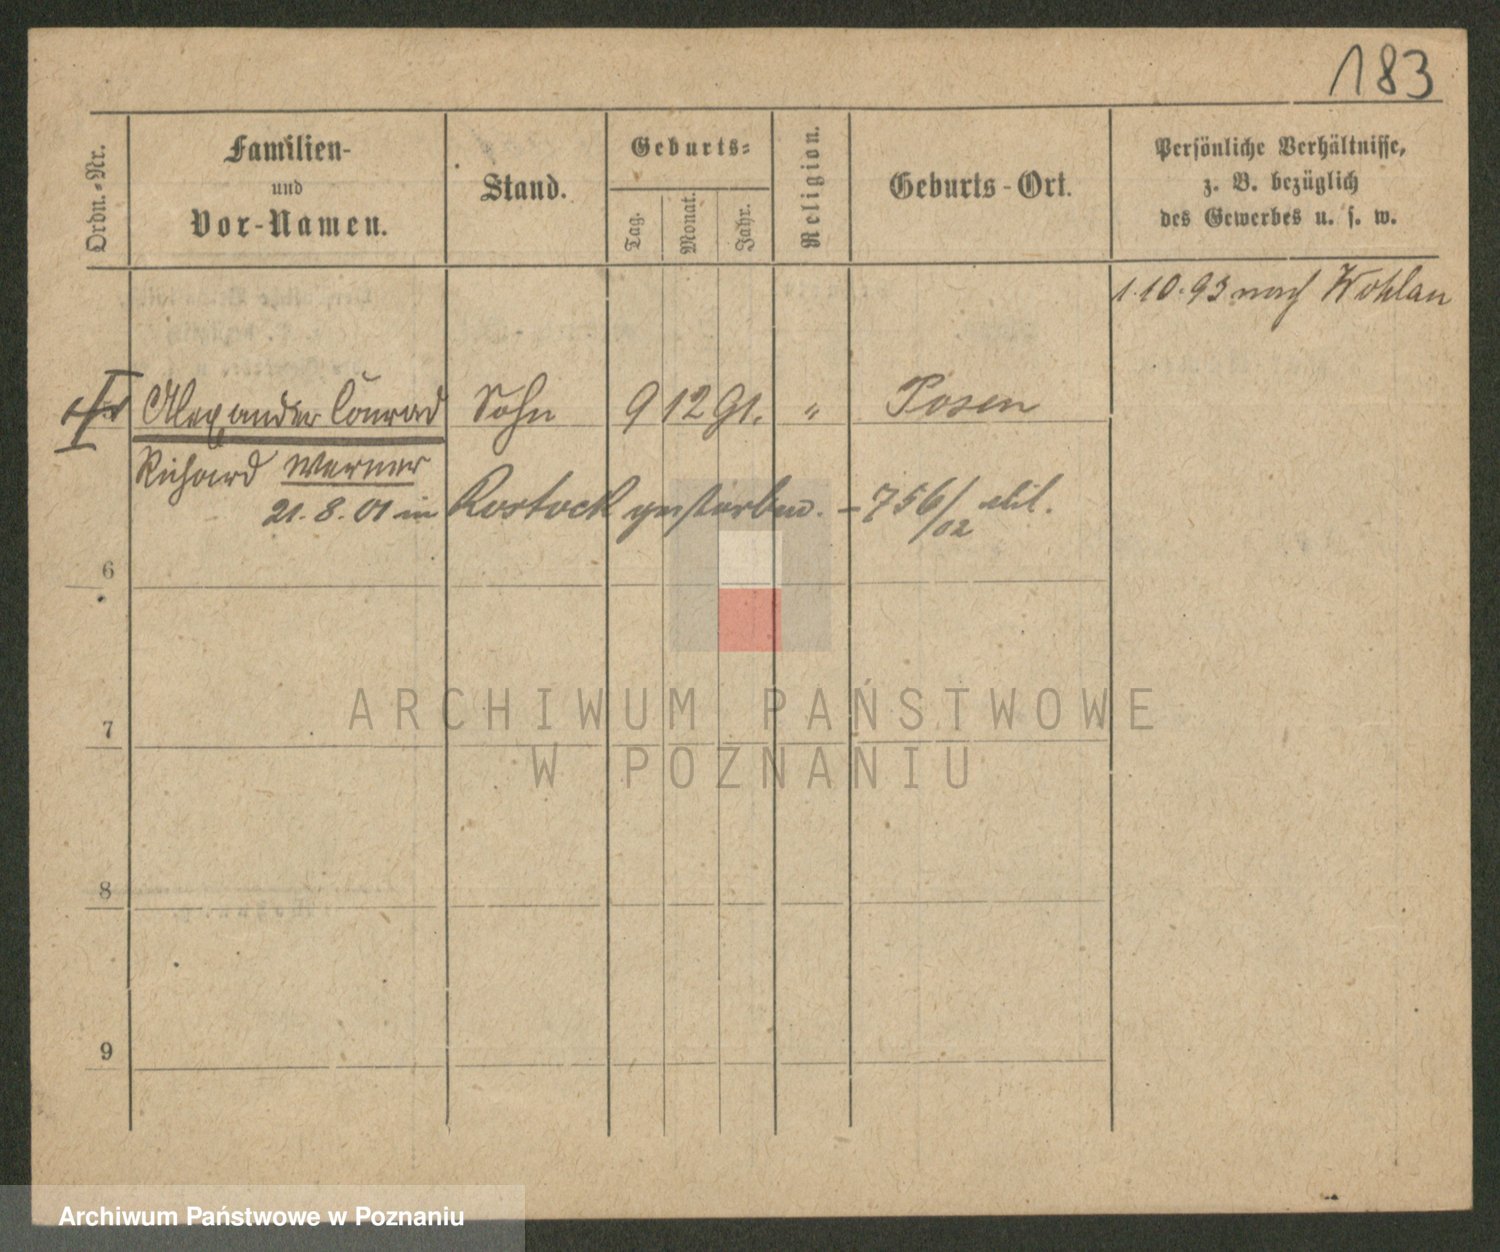 183
Ordn.-Nr.
Familien-
und
Vor-Namen.
Stand.
Geburts-
Tag.
Monat.
Jahr.
Religion.
Geburts-Ort.
Persönliche Verhältnisse,
z. B. bezüglich
des Gewerbes u. s. w.
1.10.93 nach Wohlau
Alexander Conrad Sohn 9 12 91. " Posen
Richard Werner
21.8.01 in Rostock gestorben. - 756/02
6
7
8
9
ARCHIWUM PAŃSTWOWE
W POZNANIU
Archiwum Państwowe w Poznaniu